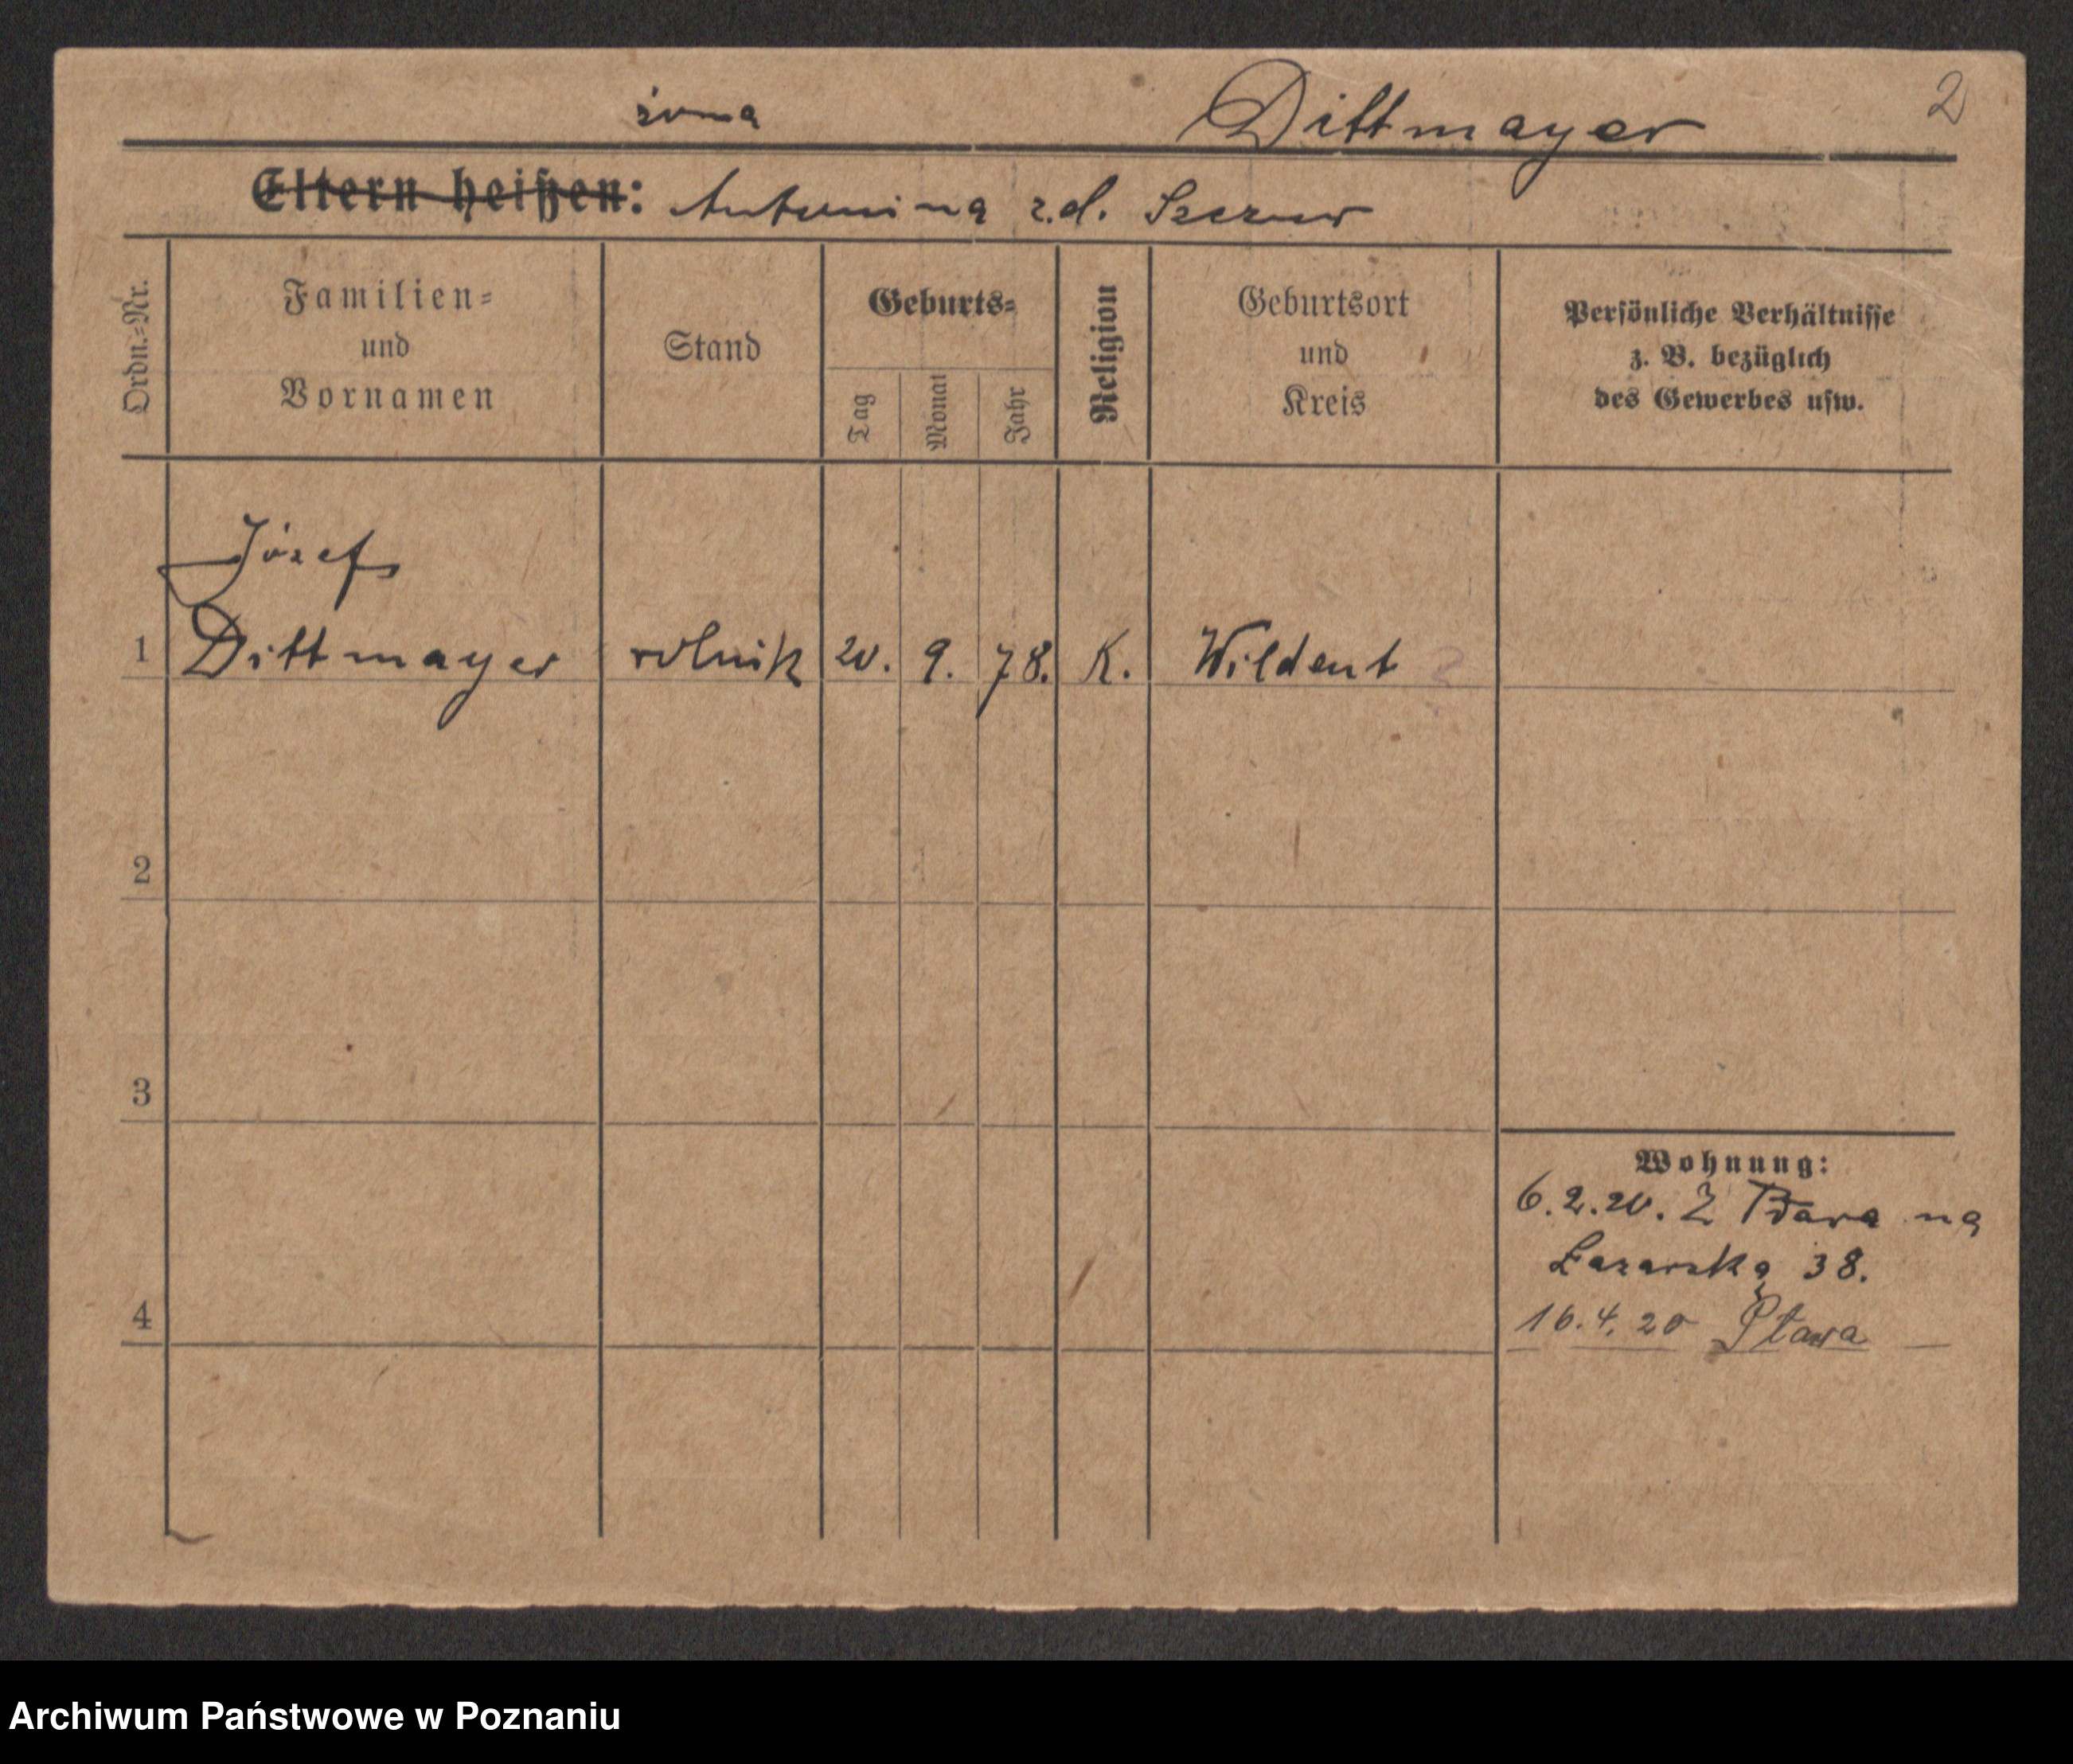 żona Dittmayer 2
Eltern heißen: Antonina z.d. Szczur
Ordn.=Nr.
Familien=
und
Vornamen
Stand
Geburts=
Tag
Monat
Jahr
Religion
Geburtsort
und
Kreis
Persönliche Verhältnisse
z. B. bezüglich
des Gewerbes usw.
Józef
1 Dittmayer rolnik 20. 9. 78. K. Wildent ?
2
3
Wohnung:
6.2.20. Z na
Łazarską 38.
4 16.4.20 Pława
Archiwum Państwowe w Poznaniu